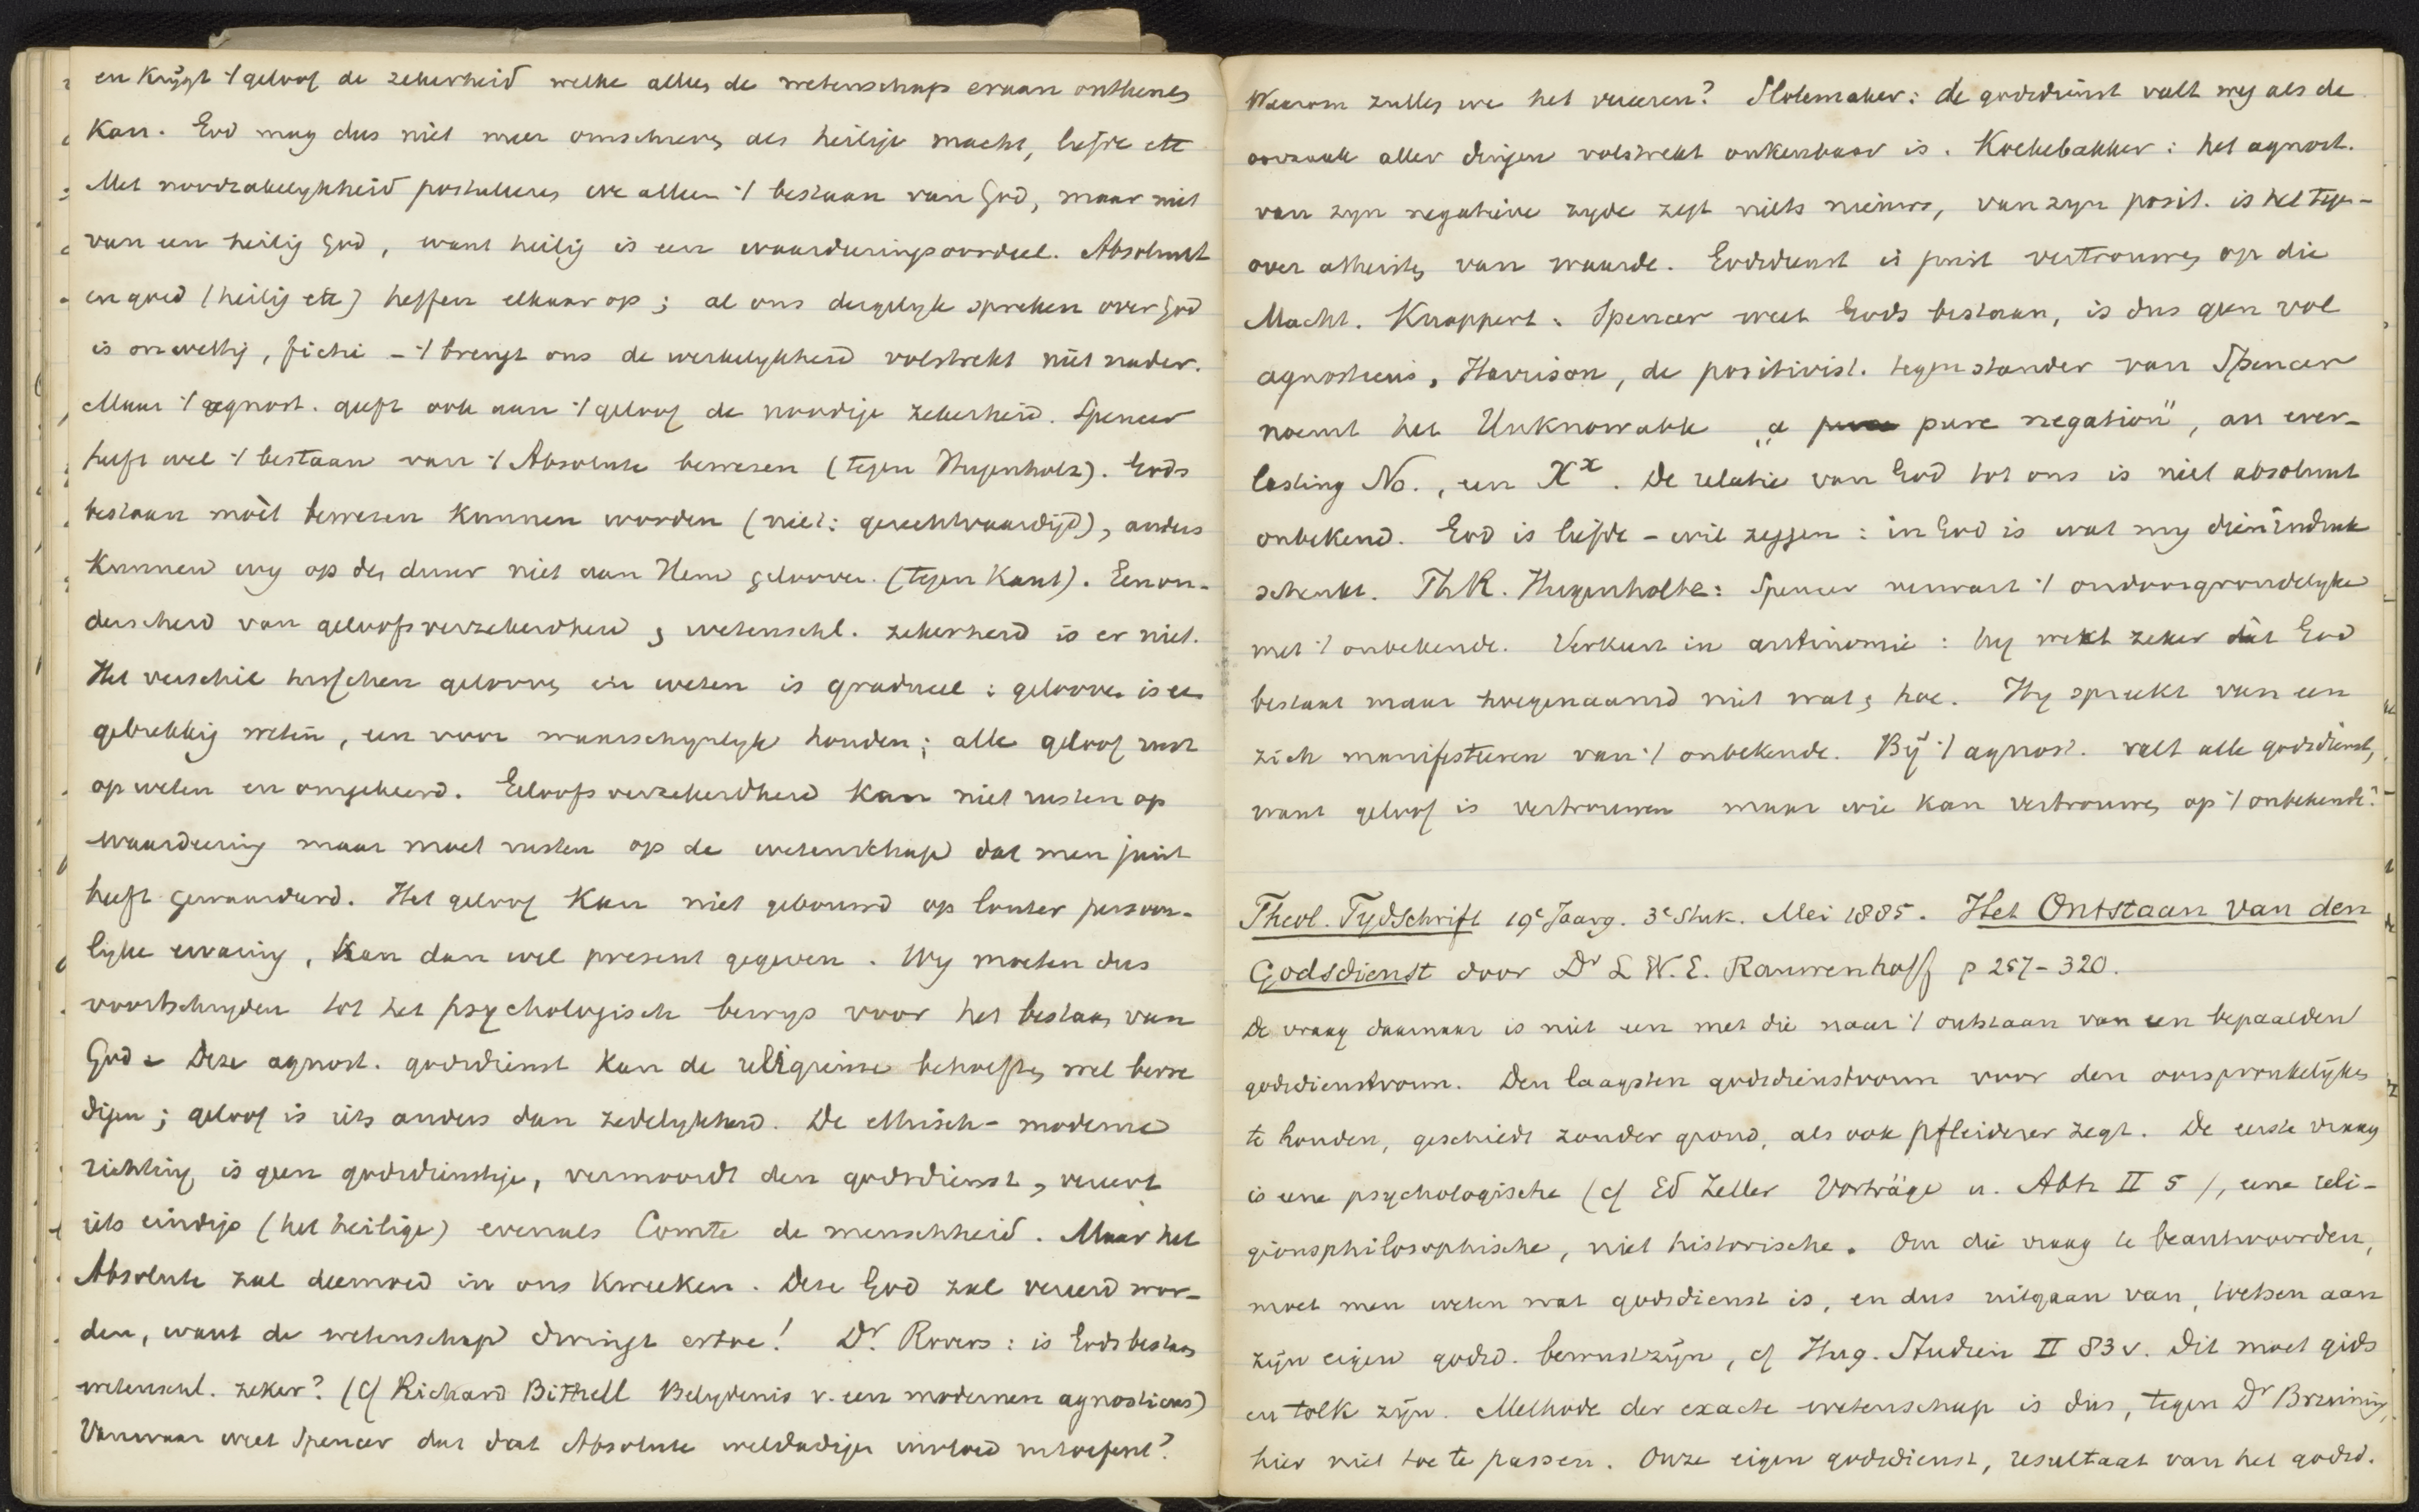 en krijgt 't geloof de zekerheid welke alleen de wetenschap eraan ontleenen
kan. God mag dus niet meer omschreven als heilige macht, liefde etc
Met noodzakelykheid postuleeren we alleen 't bestaan van God, maar niet
van een heilig God, want heilig is een waardeeringsoordeel. Absoluut
en goed (heilig etc) heffen elkaar op; al ons dergelyk spreken over God
is onwettig, fictie – 't brengt ons de werkelykheid volstrekt niet nader.
Maar 't agnost. geeft ook aan 't geloof de noodige zekerheid. Spencer
heeft wel 't bestaan van 't Absolute bewezen (tegen Hugenholtz). Gods
bestaan moèt bewezen kunnen worden (niet: gerechtvaardigd), anders
kunnen wy op den duur niet aan Hem gelooven. (tegen Kant). Een on-
derscheid van geloofsverzekerdheid & wetenschl. zekerheid is er niet.
Het verschil tusschen gelooven en weten is gradueel: gelooven is een
gebrekkig weten, een voor waarschynlyk houden; alle geloof rust
op weten en omgekeerd. Geloofsverzekerdheid kan niet rusten op
waardeering maar moet rusten op de wetenschap dat men juist
heeft gewaardeerd. Het geloof kan niet gebouwd op louter persoon-
lyke ervaring, kan dan wel present gegeven. Wy moeten dus
voortschryden tot het psychologisch bewys voor het bestaan van
God. Deze agnost. godsdienst kan de religieuse behoeften wel bevre
digen; geloof is iets anders dan zedelykheid. De ethisch-moderne
richting is geen godsdienstige, vermoordt den godsdienst, vereert
iets eindigs (het heilige) evenals Comte de menschheid. Maar het
Absolute zal deemoed in ons kweeken. Deze God zal vereerd wor-
den, want de wetenschap dwingt ertoe! Dr. Rovers: is Gods bestaan
wetenschl. zeker? (Cf Richard Bithell Belydenis v. een modernen agnosticus)
Vanwaar weet Spencer dat dat Absolute weldadigen invloed uitoefent?
Waarom zullen we het vereeren? Slotemaker: de godsdienst valt weg als de
oorzaak aller dingen volstrekt onkenbaar is. Koekebakker: het agnost.
van zyn negatieve zyde zegt niets nieuws, van zyn posit. is het tegen-
over atheisten van waarde. Godsdienst is juist vertrouwen op die
Macht. Knappert: Spencer weet Gods bestaan, is dus geen vol
agnosticus, Harrison, de positivist. tegenstander van Spencer
noemt het Unknowable „a pure negation", an ever-
lasting No., een Xˣ. De relatie van God tot ons is niet absoluut
onbekend. God is liefde – wil zeggen: in God is wat my dien indruk
schenkt. Th R. Hugenholtz: Spencer verwart 't ondoorgrondelyke
met 't onbekende. Verkeert in antinomie: hy weet zeker dàt God
bestaat maar hoegenaamd niet wat & hoe. Hy spreekt van een
zich manifesteeren van 't onbekende. By 't agnost. valt alle godsdienst,
want geloof is vertrouwen maar wie kan vertrouwen op 't onbekende?
Theol. Tydschrift 19e Jaarg. 3e Stuk. Mei 1885. Het Ontstaan van den
Godsdienst door Dr L W. E. Rauwenhoff p 257-320.
De vraag daarnaar is niet een met die naar 't ontstaan van een bepaalden
godsdienstvorm. Den laagsten godsdienstvorm voor den oorspronkelyken
te houden, geschiedt zonder grond, als ook Pfleiderer zegt. De eerste vraag
is eene psychologische (cf Ed Zeller Vorträge u. Abh II 5), eene reli-
gionsphilosophische, niet historische. Om die vraag te beantwoorden,
moet men weten wat godsdienst is, en dus uitgaan van, toetsen aan
zyn eigen godsd. bewustzyn, cf Hug. Studien II 83 v. Dit moet gids
en tolk zyn. Methode der exacte wetenschap is dus, tegen Dr Bruining,
hier niet toe te passen. Onze eigen godsdienst, resultaat van het godsd.